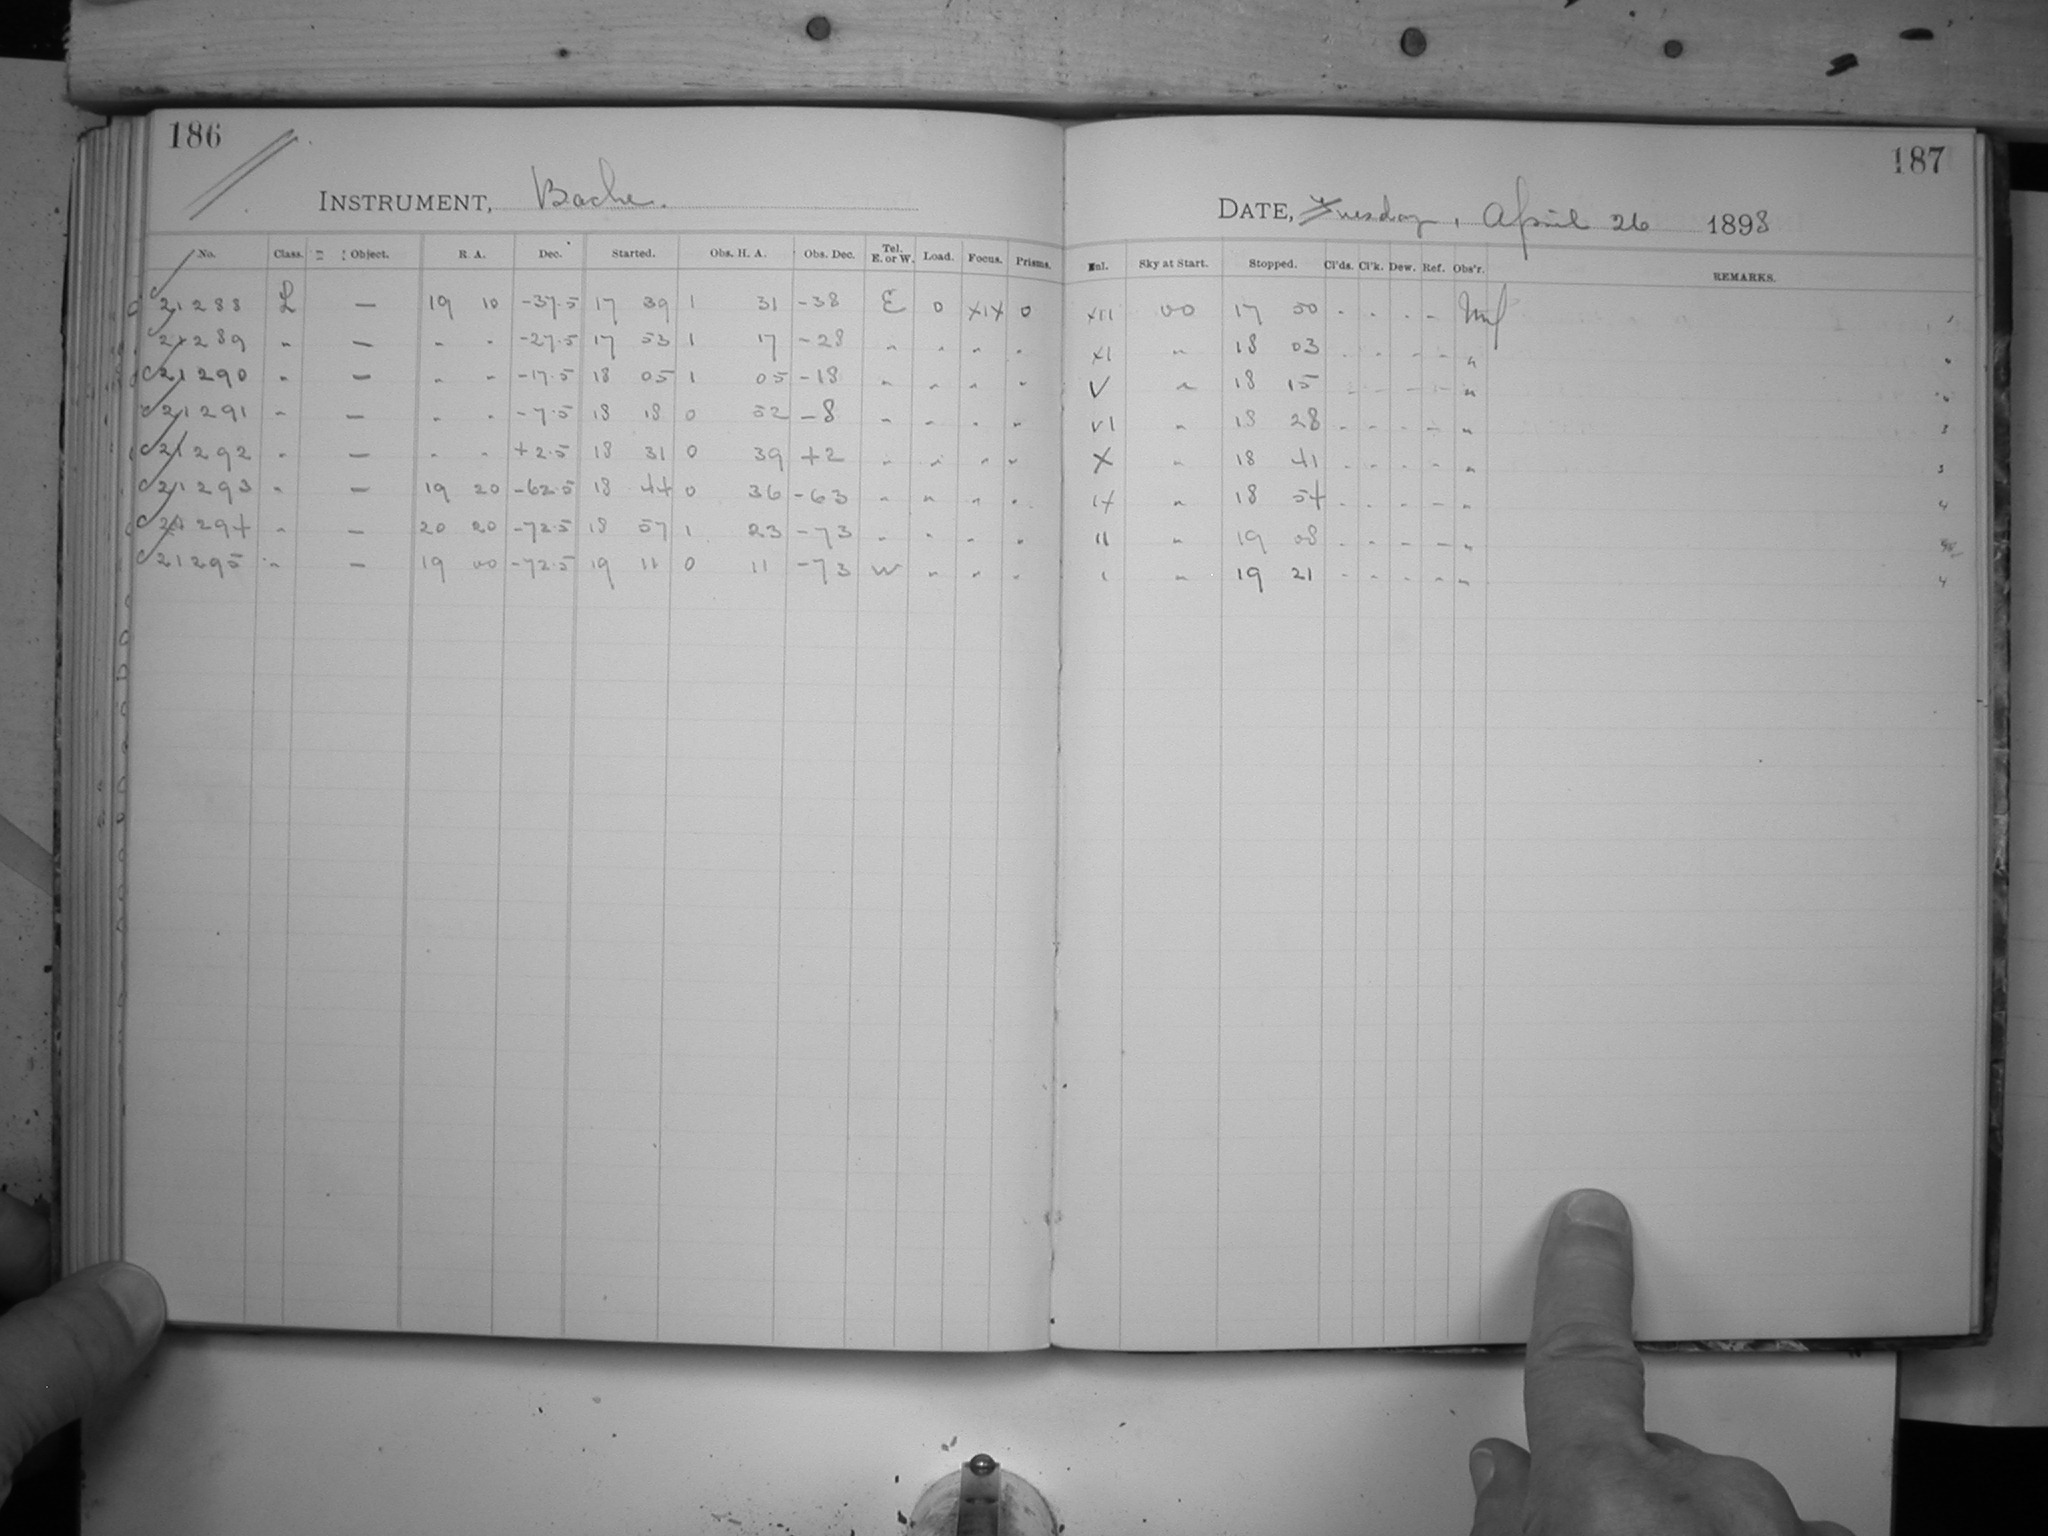 186
187
INSTRUMENT, Bache.
DATE, Tuesday, April 26 1898
No. Class. Object. R. A. Dec. Started. Obs. H. A. Obs. Dec. Tel. E. or W. Load. Focus. Prisms. Enl. Sky at Start. Stopped. Cl'ds. Cl'k. Dew. Ref. Obs'r. REMARKS.
21288 L — 19 10 -37.5 17 39 1 31 -38 E 0 XIX 0 XII 00 17 50 - - - -
21289 " — " " -27.5 17 53 1 17 -28 " " " " XI " 18 03 - - - - "
21290 " — " " -17.5 18 05 1 05 -18 " " " " V " 18 15 - - - - "
21291 " — " " -7.5 18 18 0 52 -8 " " " " VI " 18 28 - - - - " 3
21292 " — " " +2.5 18 31 0 39 +2 " " " " X " 18 41 - - - - " 3
21293 " — 19 20 -62.5 18 44 0 36 -63 " " " " IX " 18 54 - - - - " 4
21294 " — 20 20 -72.5 18 57 1 23 -73 " " " " II " 19 08 - - - - "
21295 " — 19 00 -72.5 19 11 0 11 -73 W " " " I " 19 21 - - - - " 4